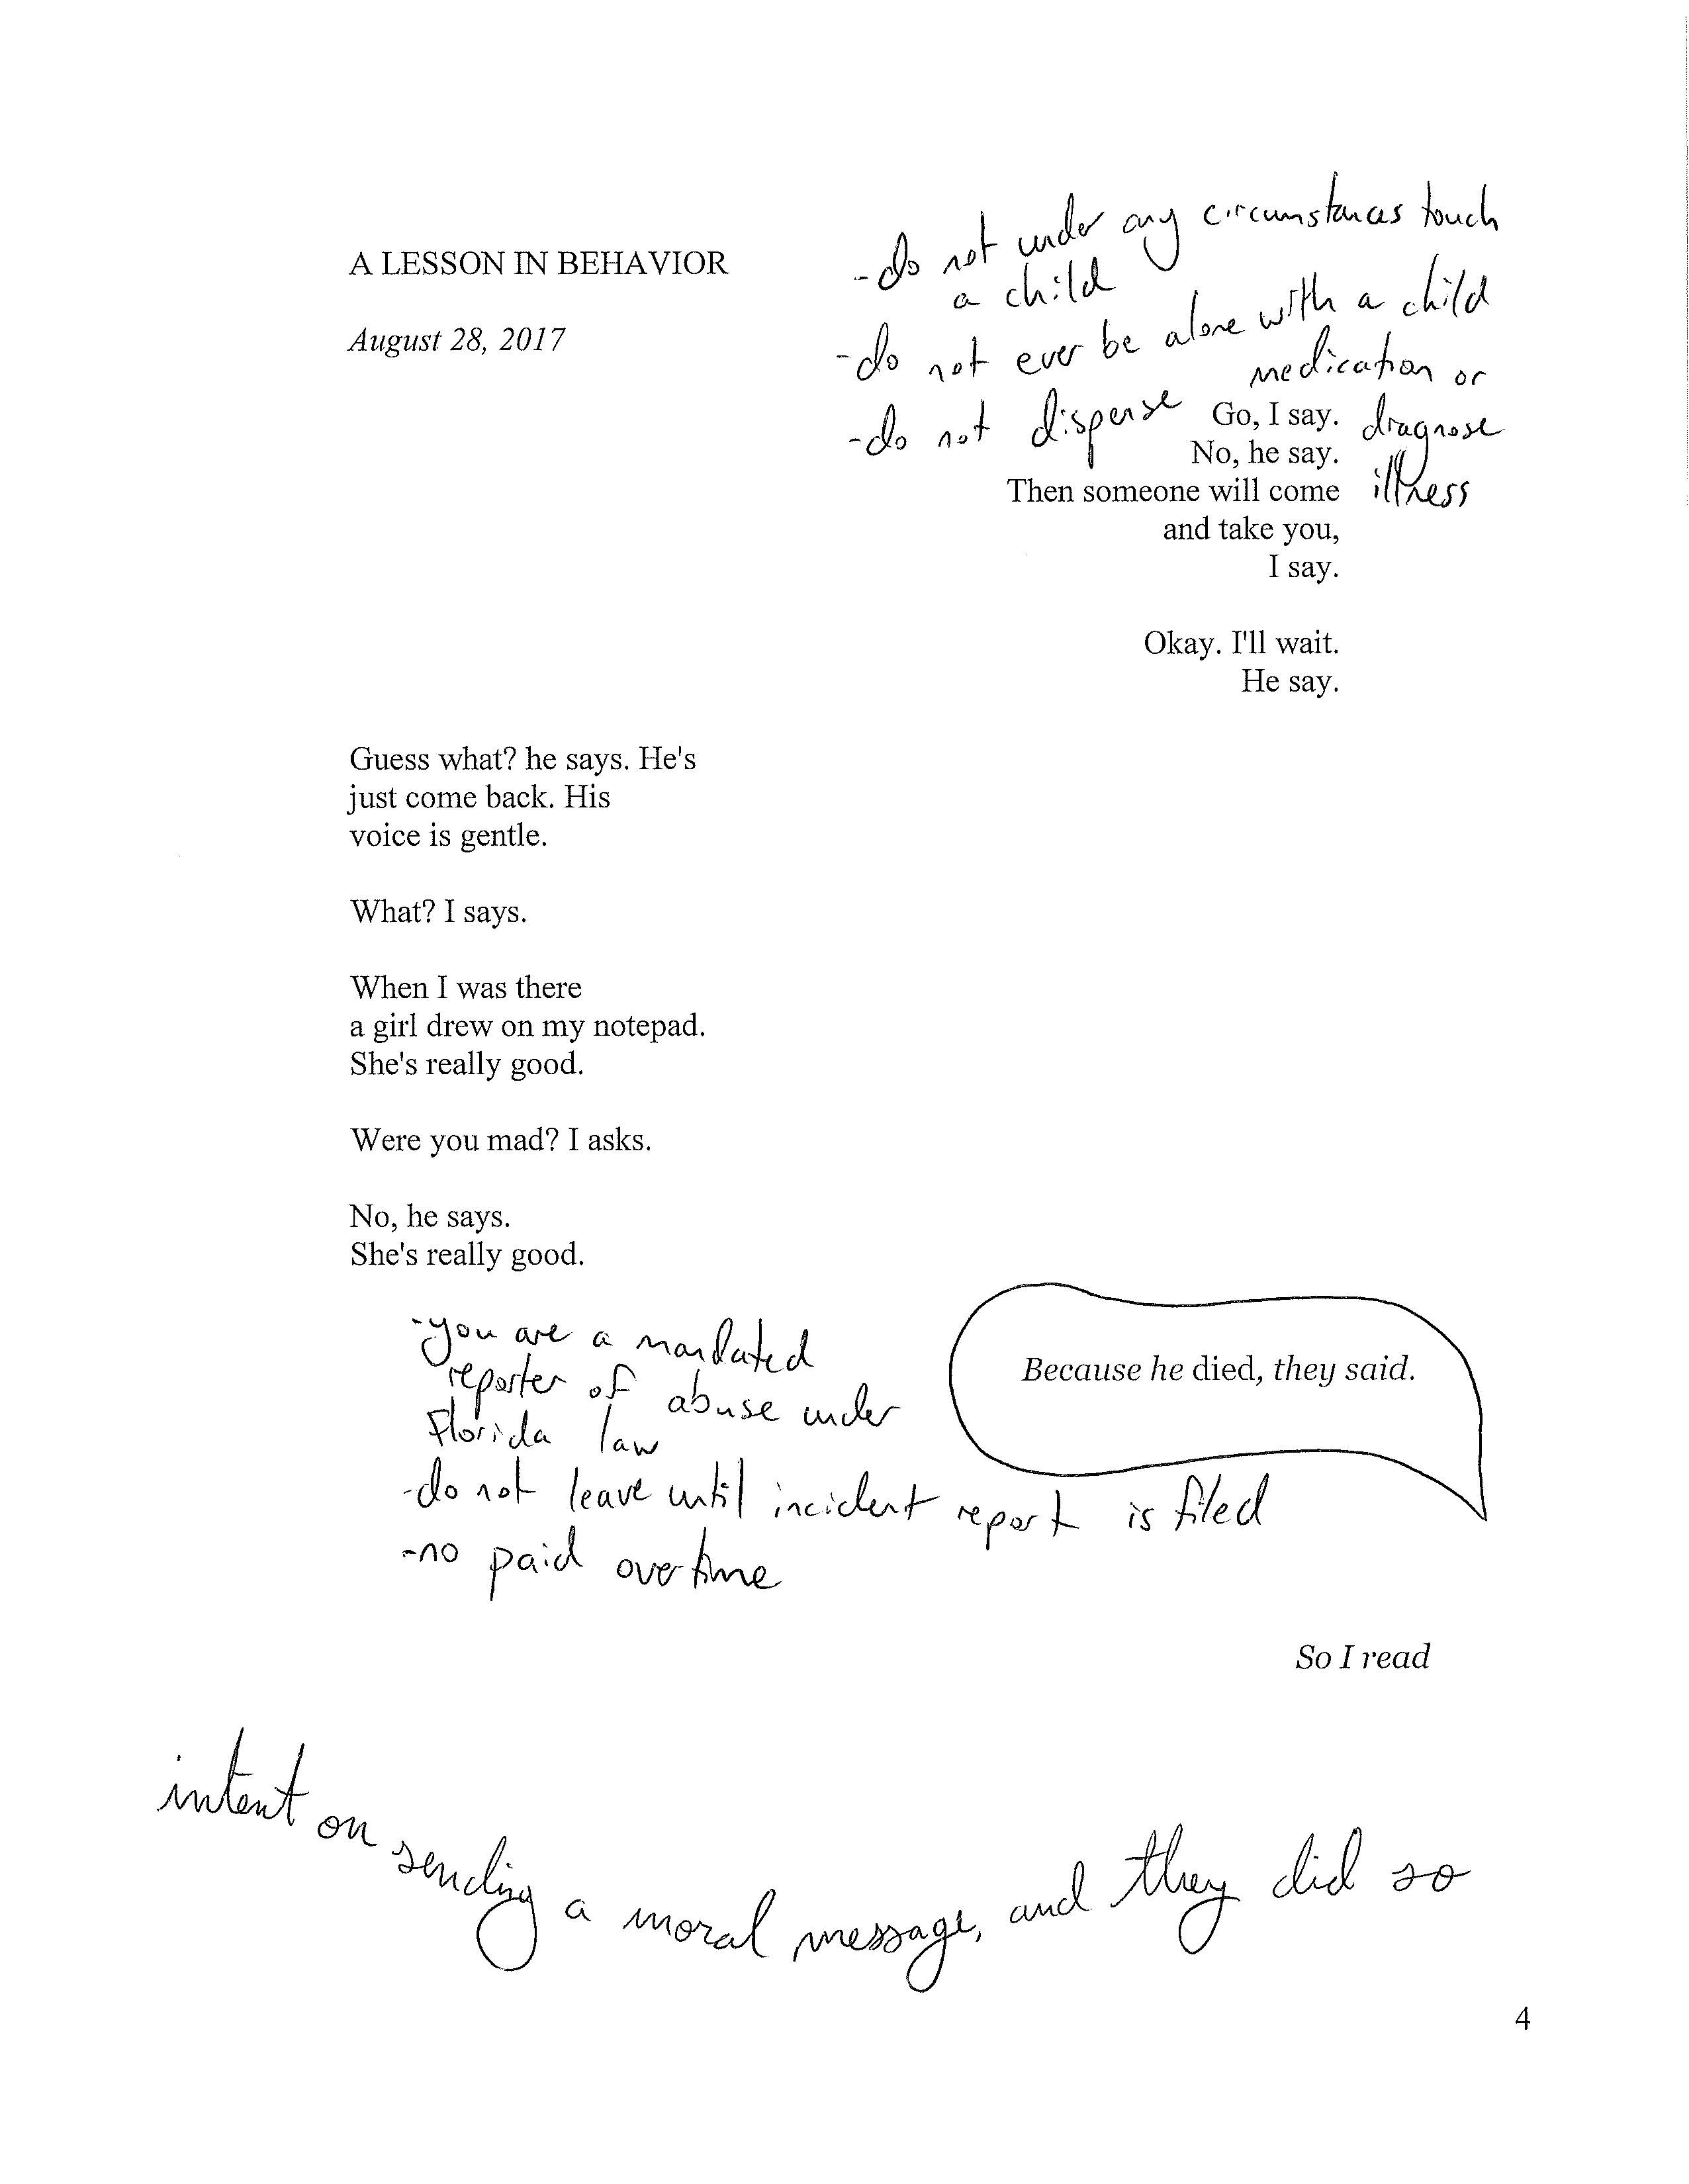 A LESSON IN BEHAVIOR
August 28, 2017
-do not under any circumstances touch
a child
-do not ever be alone with a child
-do not dispense medication or
diagnose
illness
Go, I say.
No, he say.
Then someone will come
and take you,
I say.
Okay. I'll wait.
He say.
Guess what? he says. He's
just come back. His
voice is gentle.
What? I says.
When I was there
a girl drew on my notepad.
She's really good.
Were you mad? I asks.
No, he says.
She's really good.
-you are a mandated
reporter of abuse under
Florida law
-do not leave until incident report is filed
-no paid overtime
Because he died, they said.
So I read
intent on sending a moral message, and they did so
4